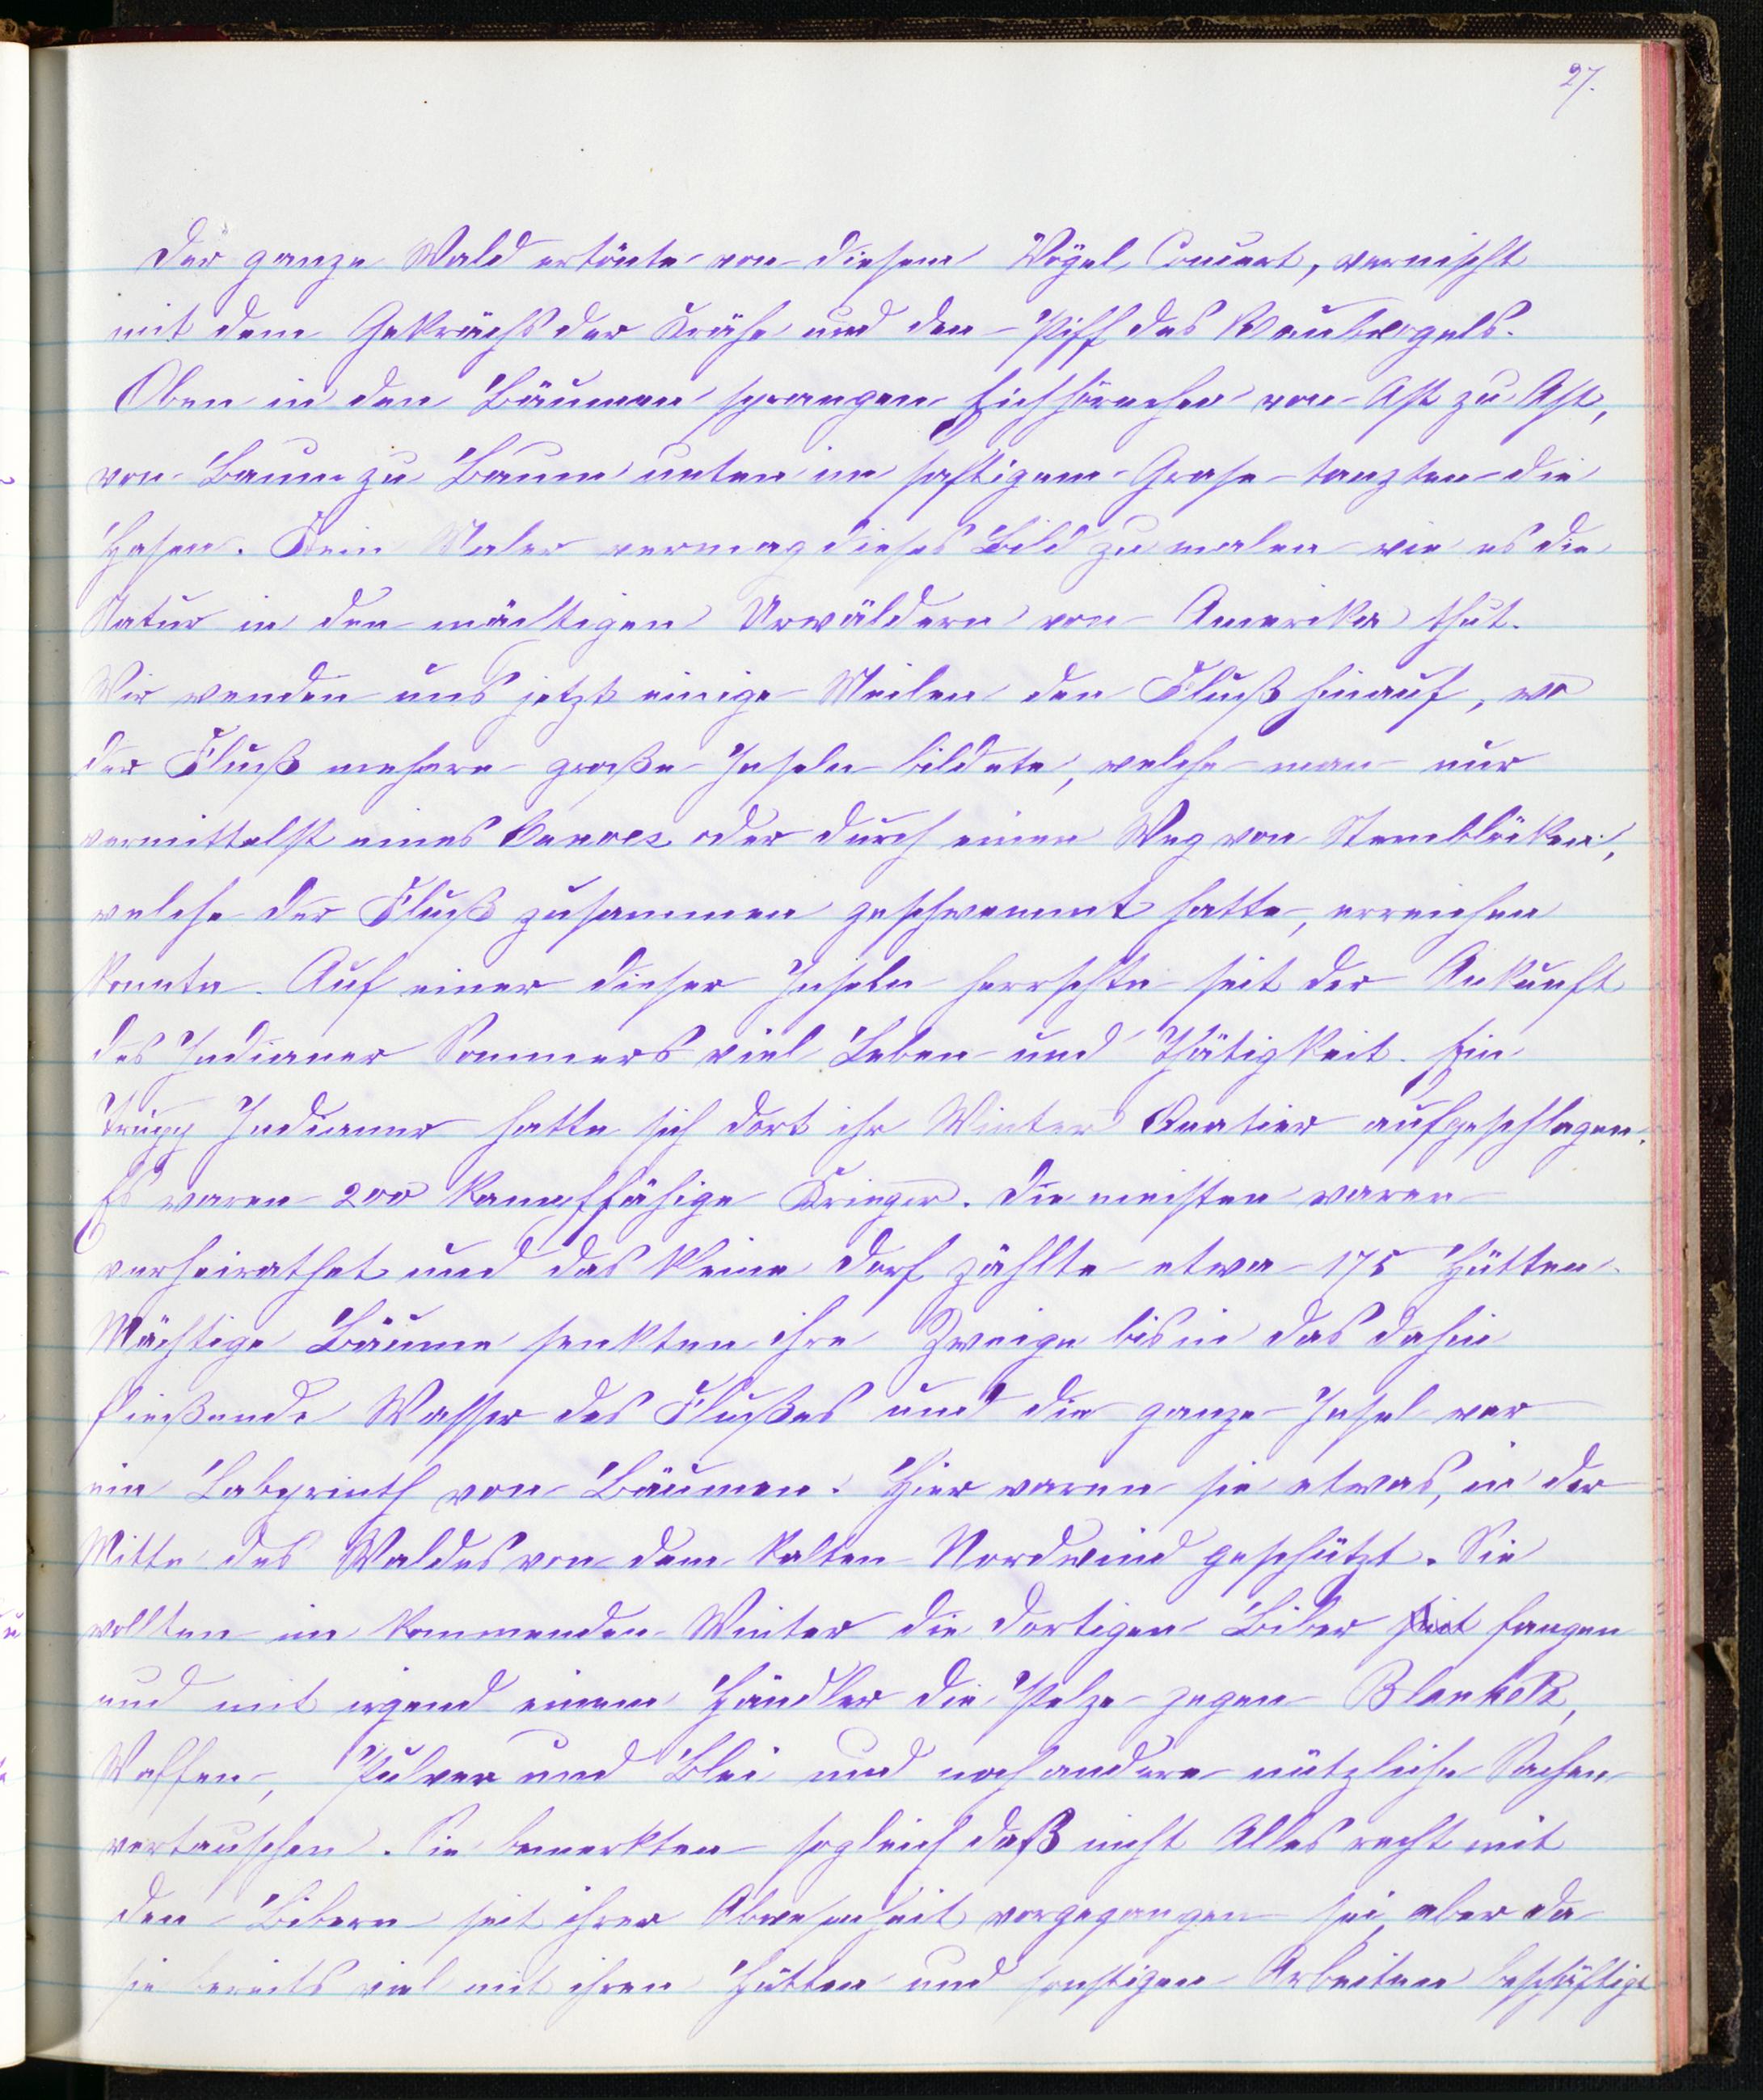 27.
Der ganze Wald ertönte von diesem Vögel Concert, vermischt
mit dem Gekrächs der Krähe und den Pfiff des Raubvogels.
Oben in den Bäumen sprangen Eichhörnchen von Ast zu Ast,
von Baum zu Baum unten im saftigem Grase tanzten die
Hasen. Kein Maler vermag dieses Bild zu malen wie es die
Natur in den mächtigen Urwäldern von Amerika thut.
Wir wenden uns jetzt einige Meilen den Fluß hinauf, wo
der Fluß mehere große Inseln bildete, welche man nur
vermittelst eines Canoes oder durch einen Weg von
welche der Fluß zusammen geschwemmt hatte, erreichen
konnte. Auf einer dieser Inseln herrschte seit der Ankunft
des Indianer Sommers viel Leben und Thätigkeit. Ein
Trupp Indianer hatte sich dort ihr Winter Quatier aufgeschlagen.
Es waren 200 kampffähige Krieger. Die meisten waren
verheirathet und das kleine Dorf zählte etwa 175 Hütten.
Mächtige Bäume senkten ihre Zweige bis in das dahin
fließende Wasser des Flußes und die ganze Insel war
ein Labyrinth von Bäumen. Hier waren sie etwas, in der
Mitte des Waldes von dem kalten Nordwind geschützt. Sie
wollten im kommenden Winter die dortigen Biber fangen
und mit irgend einem Händler die Pelze gegen Blankets,
Waffen, Pulver und Blei und noch andere nützliche Sachen
vertauschen. Sie bemerkten sogleich daß nicht Alles recht mit
den Bibern seit ihrer Abwesenheit vorgegangen sei, aber da
sie bereits viel mit ihren Hütten und sonstigen Arbeiten beschäftigt